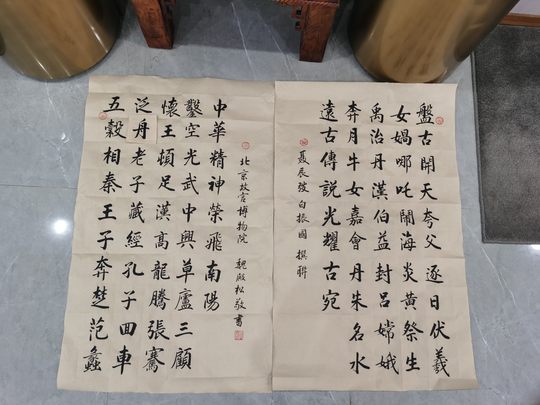 盤古開天夸父逐日伏羲
女媧哪吒鬧海炎黃祭生
禹治丹漢伯益封呂嫦娥
奔月牛女嘉會丹朱名水
遠古傳說光耀古宛
白振國 撰聯
五穀相秦王子奔楚范蠡
泛舟老子藏經孔子回車
懷王頓足漢高龍騰張騫
鑿空光武中興草廬三顧
中華精神榮飛南陽
北京故宮博物院 魏殿松敬書